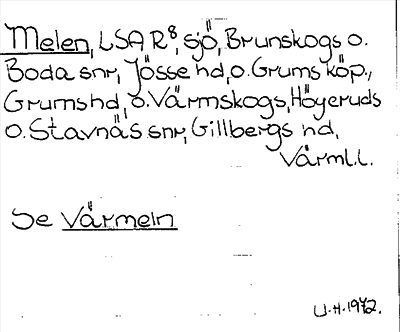 Melen, LSA R⁸, sjö, Brunskogs o.
Boda snr, Jösse hd, o. Grums köp.,
Grums hd, o. Värmskogs, Högeruds
o. Stavnäs snr, Gillbergs hd,
Värml.l.
Se Värmeln
U.H. 1972.